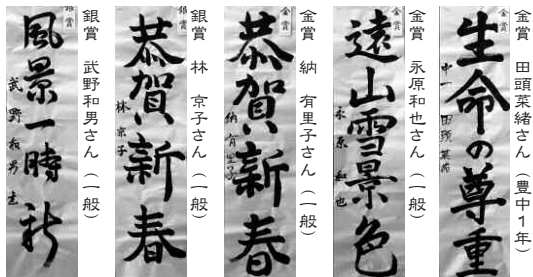 金賞　田頭菜緒さん（豊中１年）
金賞
生命の尊重
中一 田頭菜緒
金賞　永原和也さん（一般）
金賞
遠山雪景色
永原和也
金賞　納　有里子さん（一般）
金賞
恭賀新春
納有里子
銀賞　林　京子さん（一般）
銀賞
恭賀新春
林京子
銀賞　武野和男さん（一般）
銀賞
風景一時新
武野和男